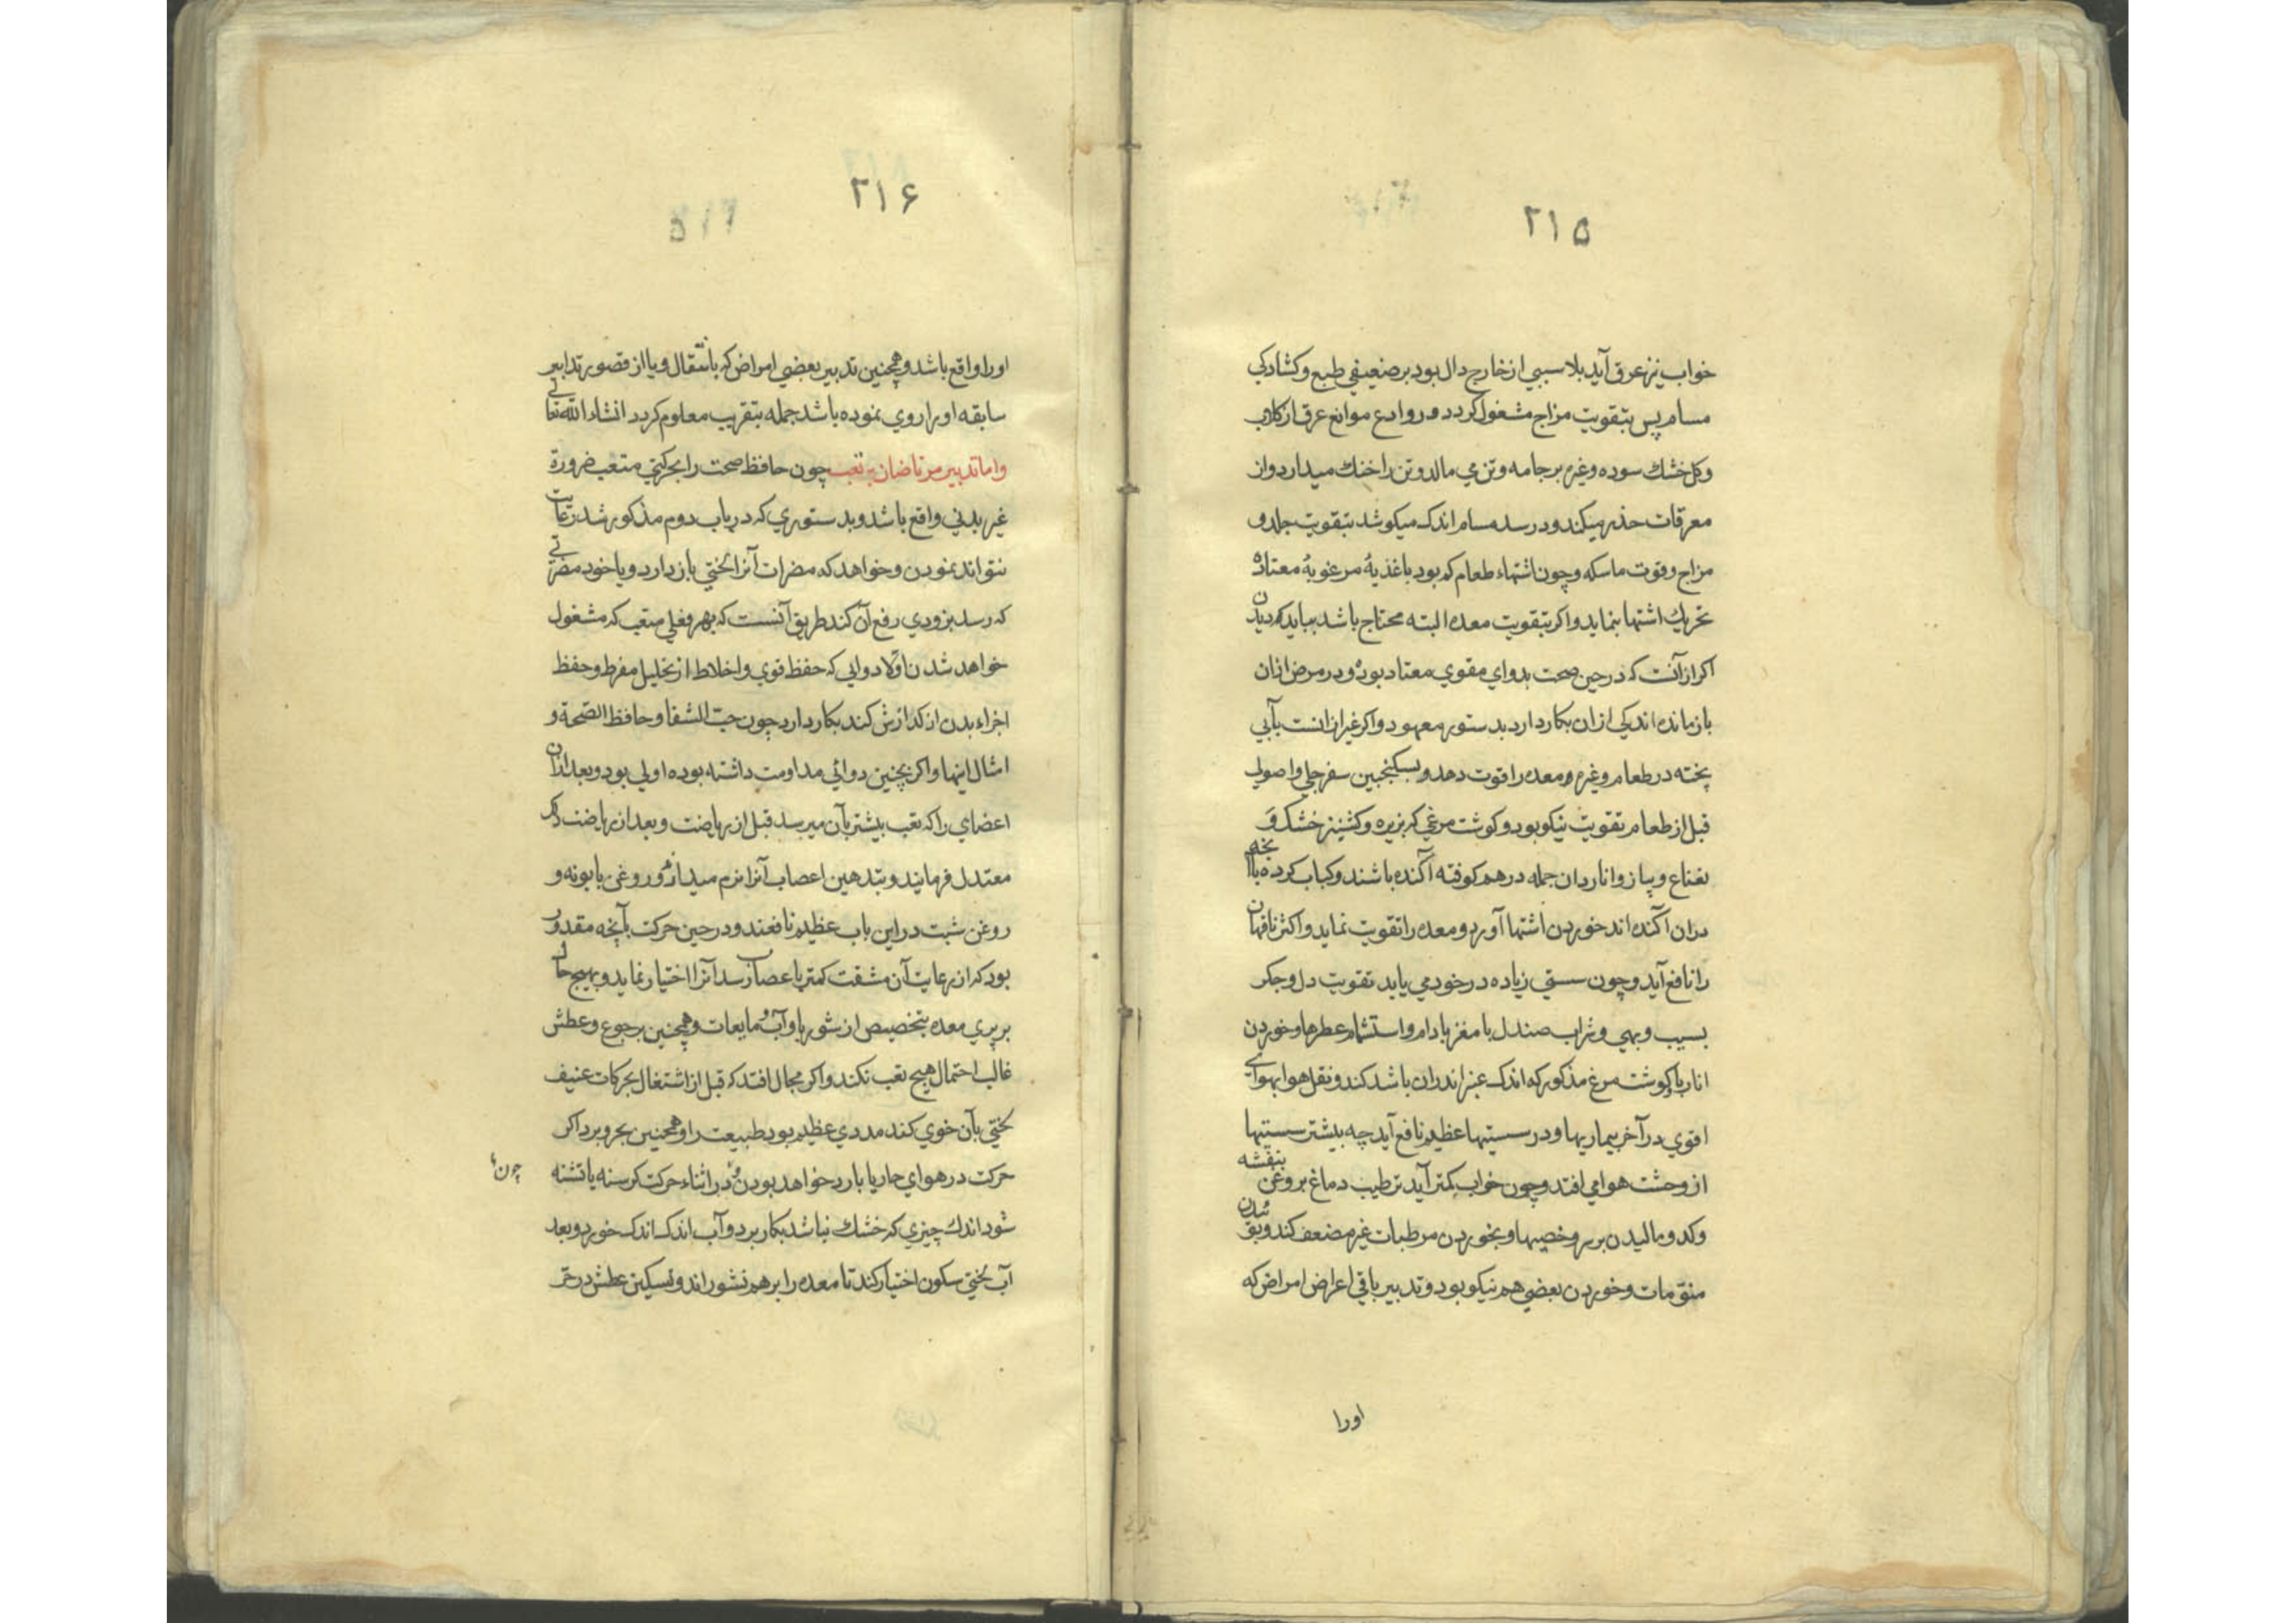 ۲۱۵
خواب نیز عرق آید بلا سببی از خارج دال بود بر ضعیفی طبع و کشادکی
مسام پس بتقویت مزاج مشغول کردد و روادع موانع عرق از کلاب
و کل خشک سوده و غیره بر جامه و تن می مالد و تن را خنک میدارد و از
معرقات حذر میکند و در سد مسام اندک میکوشد بتقویت جلد و
مزاج و قوت ماسکه و چون اشتهاء طعام کم بود باغذیهٔ مرغوبهٔ معتاده
تحریک اشتها بنماید و اکر بتقویت معده البته محتاج باشد بباید دیدن
اکر از آنست که در حین صحت بدوای مقوی معتاد بوده و در مرض ازان
بازمانده اندکی ازان بکار دارد بدستور معهود و اکر غیر ازانست بآبی
پخته در طعام و غیره و معده را قوت دهد و بسکنجبین سفرجلی و اصولی
قبل از طعام تقویت نیکو بود و کوشت مرغی که بزیره و کشنیز خشک و
نعناع و پیاز و اناردان جمله درهم کوفته آکنده باشند و کباب کرده با آنچه
دران آکنده اند خوردن اشتها آورد و معده را تقویت نماید و اکثر ناقهان
را نافع آید و چون سستی زیاده در خود می یابد تقویت دل و جکر
بسیب و بهی و شراب صندل با مغز بادام و استشمام عطرها و خوردن
انار با کوشت مرغ مذکور که اندک عنبر اندران باشد کند و نقل هوا بهوای
اقوی در آخر بیماریها و در سستیها عظیم نافع آید چه بیشتر سستیها
از وحشت هوا می افتد و چون خواب کمتر آید ترطیب دماغ بروغن بنفشه
و کدو مالیدن بر سر و خصیها و بخوردن مرطبات غیر مضعف کند و بوئیدن
منوّمات و خوردن بعضی هم نیکو بود و تدبیر باقی اعراض امراض که
اورا
۲۱۶
اورا واقع باشد و همچنین تدبیر بعضی امراض که بانتقال و یا از قصور تدابیر
سابقه اورا روی نموده باشد جمله بتقریب معلوم کردد انشاء الله تعالی
واما تدبیر مرتاضان پر تعب چون حافظ صحت را بحرکتی متعب ضرورة
غیر بدنی واقع باشد و بدستوری که در باب دوم مذکور شد رعایت
نتواند نمودن و خواهد که مضرات آنرا لختی باز دارد و یا خود مضرتی
که رسد بزودی رفع آن کند طریق آنست که بهر فعلی متعب که مشغول
خواهد شدن اولا دوایی که حفظ قوی و اخلاط از تحلیل مفرط و حفظ
اجزاء بدن از کدازش کند بکار دارد چون حبّ الشفا و حافظ الصّحة و
امثال اینها و اکر بچنین دوائی مداومت داشته بوده اولی بود و بعد ازان
اعضای را که تعب بیشتر بآن میرسد قبل از ریاضت و بعد از ریاضت دلک
معتدل فرمایند و بتدهین اعصاب آنرا نرم میدارند و روغن بابونه و
روغن شبت در این باب عظیم نافعند و در حین حرکت بآنچه مقدور
بود که از رعایت آن مشقت کمتر باعصاب رسد آنرا اختیار نماید و بهیچ حال
بر پری معده بتخصیص از شوربا و آب و مایعات و همچنین بر جوع و عطش
غالب احتمال هیچ تعب نکند و اکر مجال افتد که قبل از اشتغال بحرکات عنیف
لختی بآن خوی کند مددی عظیم بود طبیعت را و همچنین بحر و برد اکر
حرکت در هوای حار یا بارد خواهد بودن و در اثناء حرکت کرسنه یا تشنه
چون
شود اندک چیزی که خشک نباشد بکار برد و آب اندک اندک خورد و بعد
آب لختی سکون اختیار کند تا معده را برهم نشوراند و تسکین عطش در حر